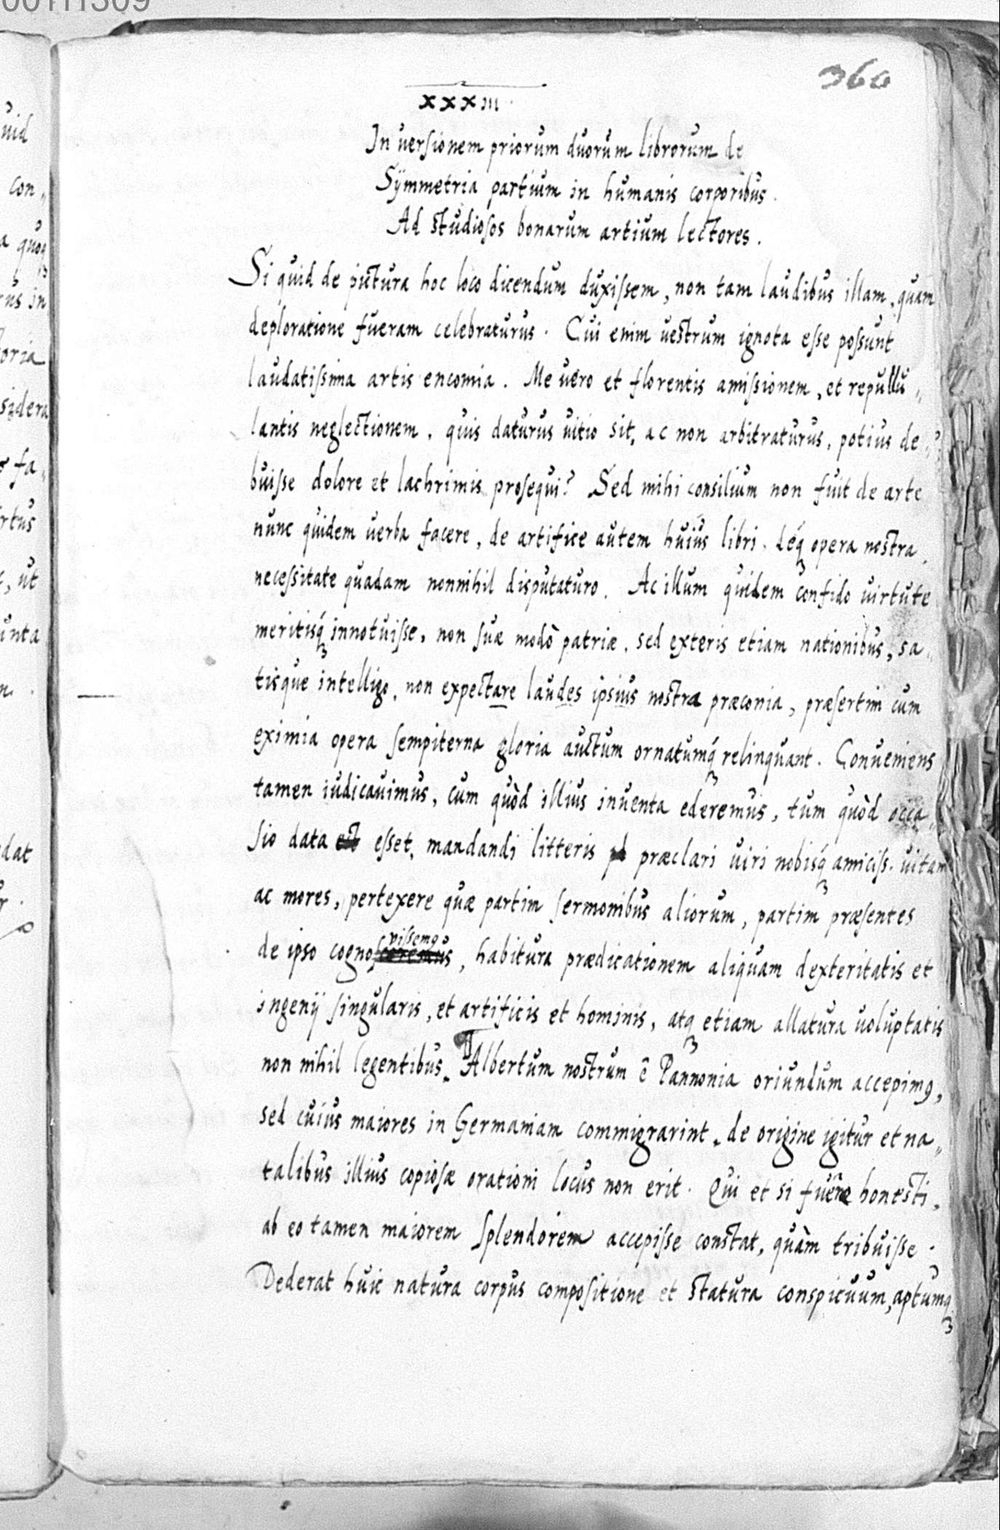 00111309
360
XXXIII.
In uersionem priorum duorum librorum de
Sÿmmetria partium in humanis corporibus.
Ad studiosos bonarum artium lectores.
Si quid de pictura hoc loco dicendum duxissem, non tam laudibus illam, quam
deploratione fueram celebraturus. Cui enim uestrum ignota esse possunt
laudatissima artis encomia. Me uero et florentis amissionem, et repullu„
lantis neglectionem, quis daturus uitio sit, ac non arbitraturus, potius de„
buisse dolore et lachrimis prosequi? Sed mihi consilium non fuit de arte
nunc quidem uerba facere, de artifice autem huius libri. Léq opera nostra,
necessitate quadam nonnihil disputaturo. Ac illum quidem confido uirtute
meritisq; innotuisse, non suæ modò patriæ, sed exteris etiam nationibus, sa„
tisque intelligo, non expectare laudes ipsius nostra præconia, præsertim cum
eximia opera sempiterna gloria auctum ornatumq́; relinquant. Conueniens
tamen iudicauimus, cum quòd illius inuenta ederemus, tum quòd occa„
sio data est esset, mandandi litteris præclari uiri nobisq́; amiciss. uitam
ac mores, pertexere quæ partim sermonibus aliorum, partim præsentes
uissemꝰ
de ipso cognosceremus, habitura prædicationem aliquam dexteritatis et
ingenij singularis, et artificis et hominis, atq; etiam allatura uoluptatis
non nihil legentibus. Albertum nostrum è Pannonia oriundum accepimꝰ,
sed cuius maiores in Germaniam commigrarint, de origine igitur et na„
talibus illius copiosæ orationi locus non erit. Qui et si fuêre honesti,
ab eo tamen maiorem splendorem accepisse constat, quàm tribuisse.
Dederat huic natura corpus compositione et statura conspicuum, aptumq;
uid
con„
a quoq;
rus in
loria
sidera
fa„
rtus
, ut
unta
n.
dat
r.